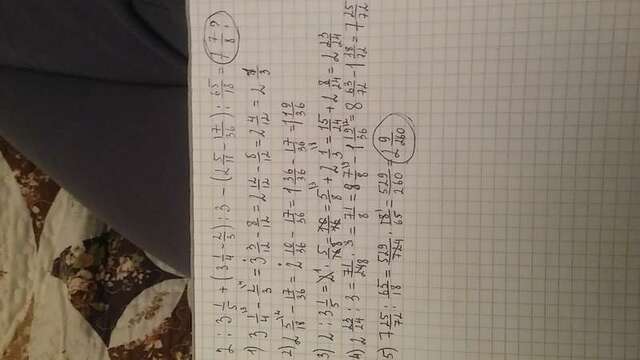 2 : 3 1/5 + (3 1/4 - 2/3) : 3 - (2 5/18 - 17/36) : 65/18 = 1 7/8 ?
1) 3 1/4 - 2/3 = 3 3/12 - 8/12 = 2 12/12 - 8/12 = 2 4/12 = 2 1/3
2) 2 5/18 - 17/36 = 2 10/36 - 17/36 = 1 36/36 - 17/36 = 1 19/36
3) 2 : 3 1/5 = 2 · 5/16 = 10/16 = 5/8 + 2 1/3 = 15/24 + 2 8/24 = 2 23/24
4) 2 23/24 : 3 = 71/248 · 3 = 71/8 = 8 7/8 - 1 19/36 = 8 63/72 - 1 38/72 = 7 25/72
5) 7 25/72 : 65/18 = 529/724 · 18/65 = 529/260 = 2 9/260